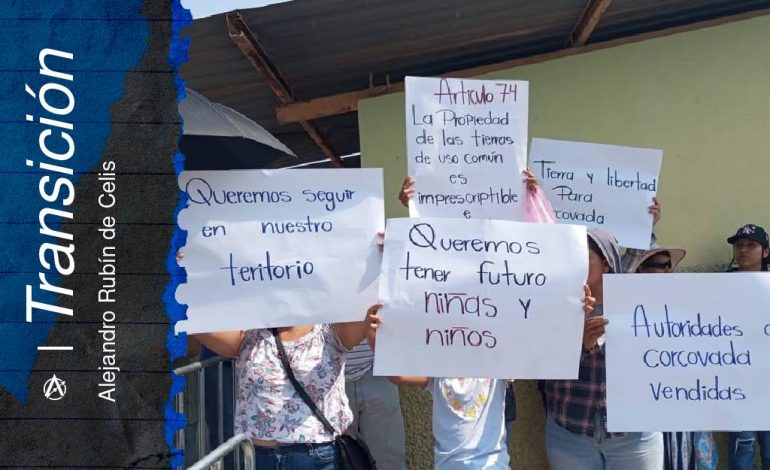 Transición
Alejandro Rubín de Celis
Queremos seguir
en nuestro
territorio
Artículo 74
La Propiedad
de las tierras
de uso común
es
imprescriptible
e
Tierra y libertad
Para
corcovada
Queremos
tener futuro
niñas y
niños
Autoridades
corcovada
vendidas